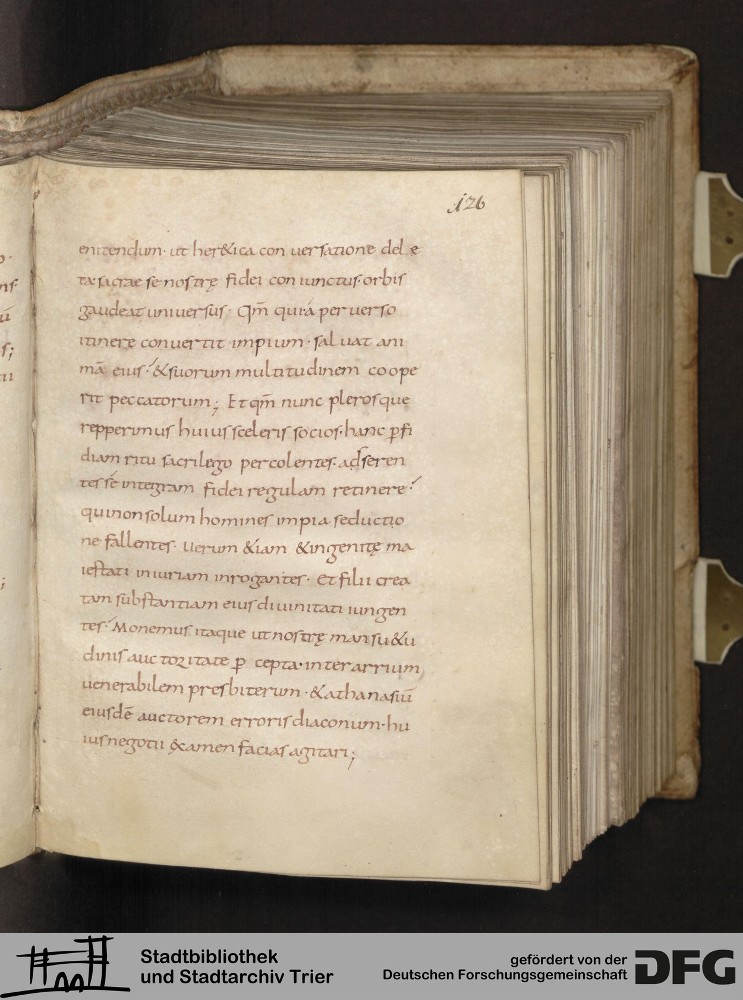 126
enitendum· ut her&ica con uersatione del e
ta· sacrae se nostrę fidei coniunctus· orbis
gaudeat uniuersus· Qm̄ qui á peruerso
itinere conuertit impium· saluat ani
mā eius· &suorum multitudinem coope
rit peccatorum; Et qm̄ nunc plerosque
repperimus huius sceleris socios· hanc ꝑfi
diam ritu sacrilego percolentes· adseren
tes sé integram fidei regulam retinere·
qui non solum homines impia seductio
ne fallentes· uerum &iam &ingenitę ma
iestati iniuriam inrogantes· et filii crea
tam substantiam eius diuinitati iungen
tes· Monemus itaque ut nostrę mansu&u
dinis auctoritate ꝑ cepta· inter arrium
uenerabilem presbiterum· &athanasiū
eiusdē auctorem erroris diaconum· hu
ius negotii &amen facias agitari;
Stadtbibliothek
und Stadtarchiv Trier
gefördert von der
Deutschen Forschungsgemeinschaft
DFG